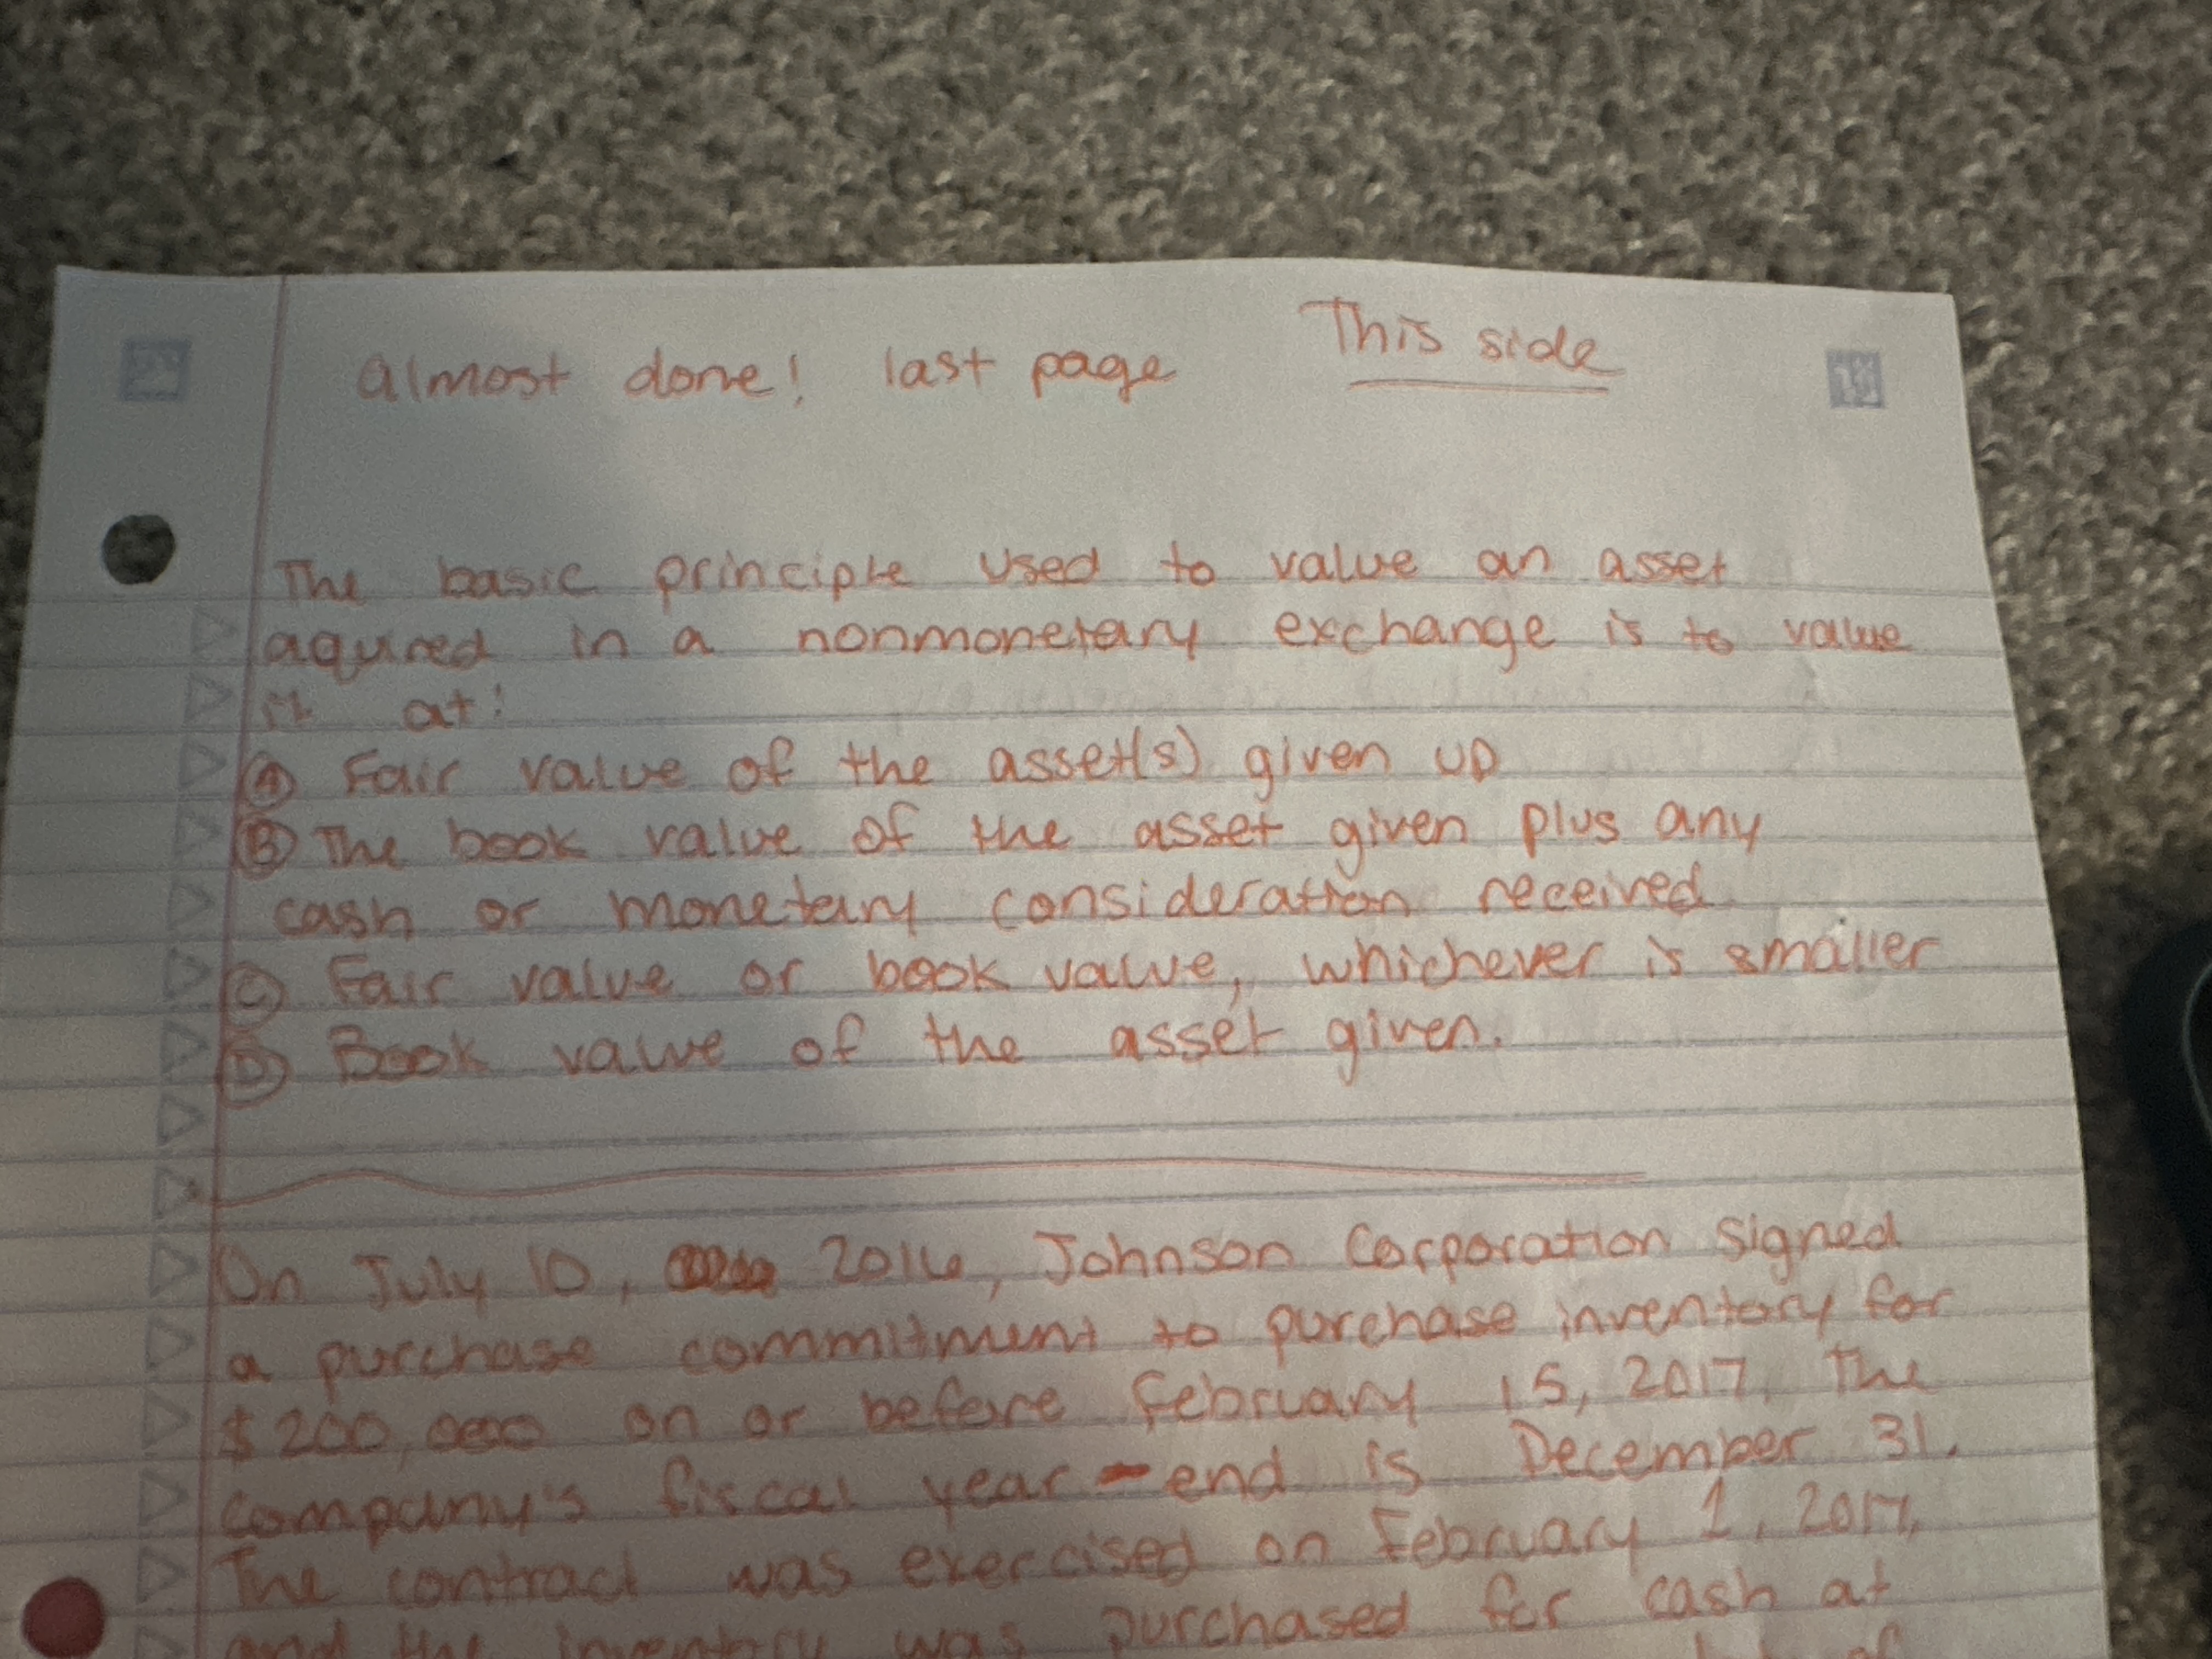 almost done! last page This side
The basic principle used to value an asset
aquired in a nonmonetary exchange is to value
it at:
Ⓐ Fair value of the asset(s) given up
Ⓑ The book value of the asset given plus any
cash or monetary consideration received
Ⓒ Fair value or book value, whichever is smaller
Ⓓ Book value of the asset given.
On July 10, 2016, Johnson Corporation signed
a purchase commitment to purchase inventory for
$200,000 on or before February 15, 2017. The
company's fiscal year-end is December 31.
The contract was exercised on February 1, 2017,
and the inventory was purchased for cash at
of